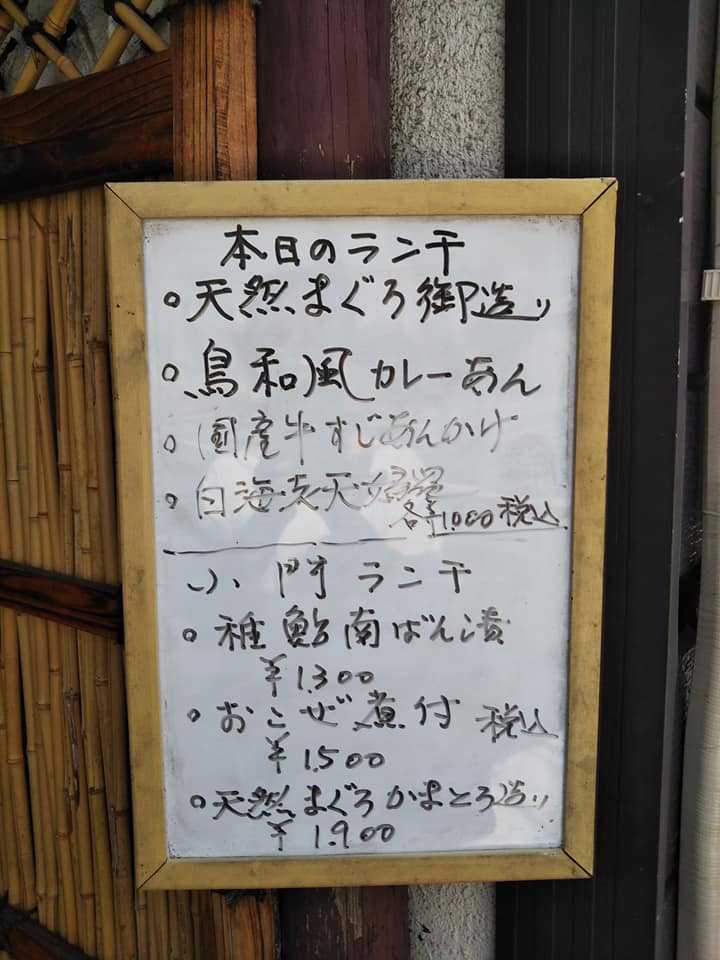 本日のランチ
○天然まぐろ御造り
○鳥和風カレーあん
○国産牛すじあんかけ
○白海老天婦羅
各¥1,000税込
小門ランチ
○稚鮎南ばん漬
¥1,300
○おこぜ煮付 税込
¥1,500
○天然まぐろかまとろ造り
¥1,900